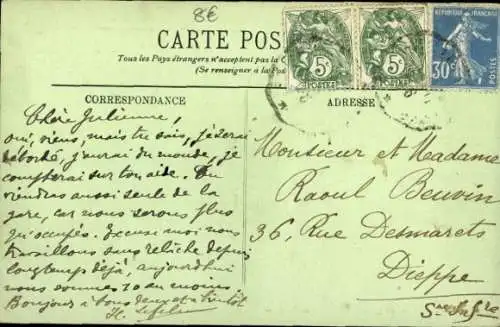 8€
CARTE POS
Tous les Pays étrangers n'acceptent pas la C
(Se renseigner à la Pos
5c
POSTES
5c
POSTES
RÉPUBLIQUE FRANÇAISE
30c
POSTES
CORRESPONDANCE
ADRESSE
Chère Julienne,
oui, viens, mais tu sais, je serai
débordé, j'aurai du monde, je
compterai sur ton aide. Tu
viendras aussi seule de la
gare, car nous serons plus
qu'occupés. Excuse moi nous
travaillons sans relâche depuis
longtemps déjà, aujourd'hui
nous sommes 70 au moins
Bonjour à tous deux et à bientôt
Monsieur et Madame
Raoul Beuvin
36, Rue Desmarets
Dieppe